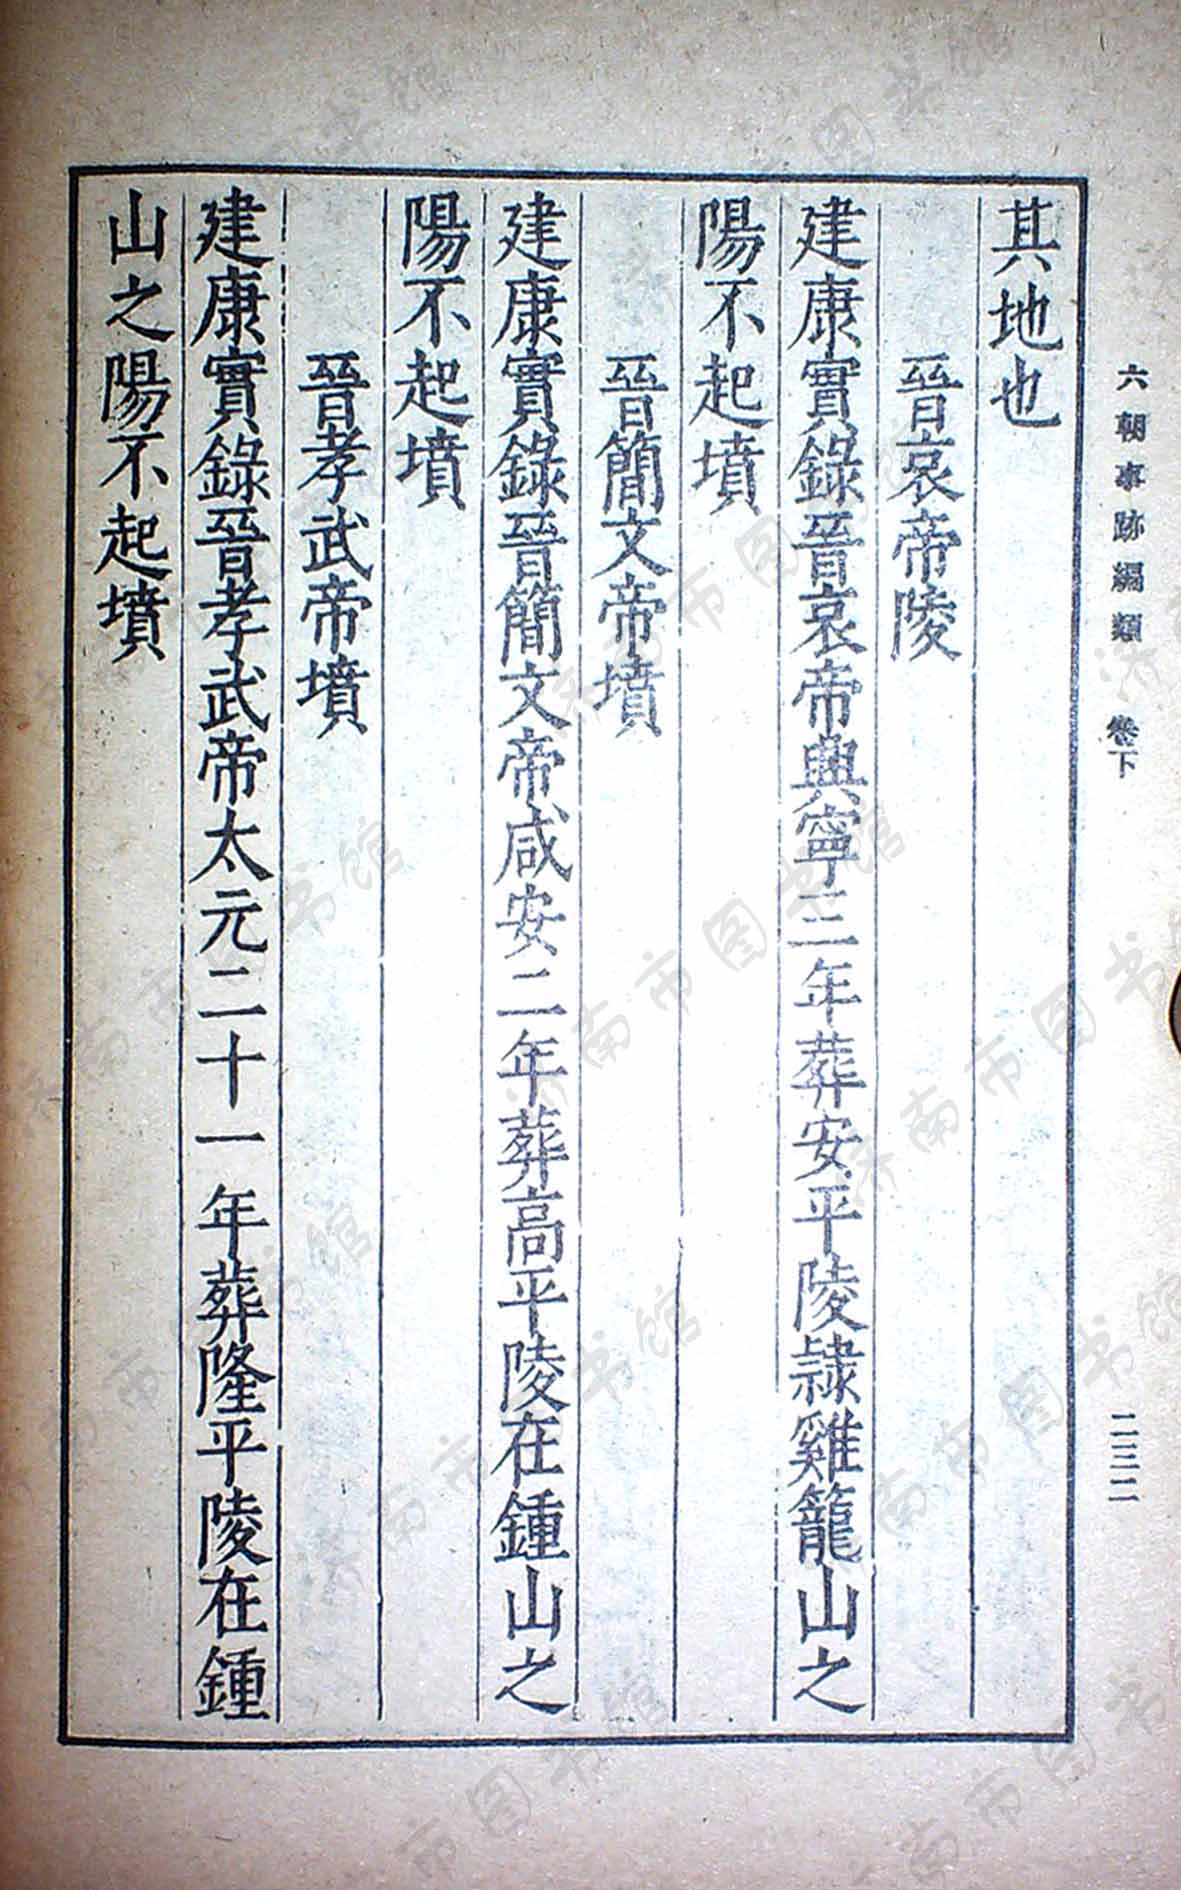 六朝事跡編類 卷下
二三二
其地也
晉哀帝陵
建康實錄晉哀帝興寧三年葬安平陵隷雞籠山之
陽不起墳
晉簡文帝墳
建康實錄晉簡文帝咸安二年葬高平陵在鍾山之
陽不起墳
晉孝武帝墳
建康實錄晉孝武帝太元二十一年葬隆平陵在鍾
山之陽不起墳
济南市图书馆